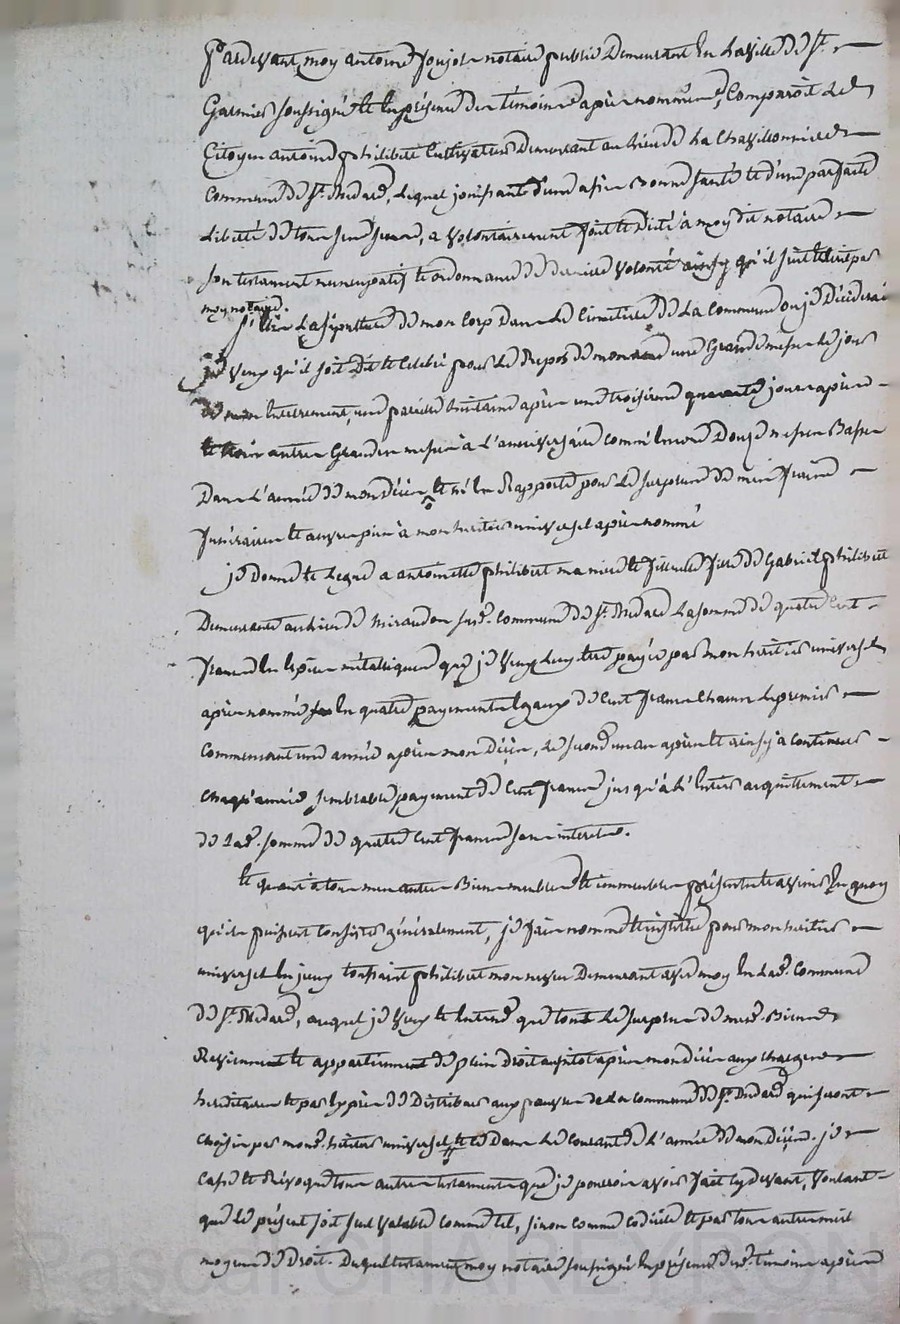 Pardevant moy antoine notaire public Demeurant En La ville de St.
Galmier soussigné et En présence des temoins après nommés, Comparoît Le
Citoyen antoine philibert Cultivateur Demeurant au Lieu de La
Commune de St. Medard, Lequel jouissant d'une assés Bonne santé et d'une parfaite
Liberté de tous ses sens, a volontairement fait et Dicté à moy dit notaire
son testament nuncupatif et ordonnance de derniere volonté ainsy qu'il suit et Ecrit par
moy notaire.
j'Elis La sépulture de mon Corp Dans Le Cimetiere de La Commune ou je Décéderai
je veux qu'il soit Dit et Celebré pour Le Repos de mon ame une Grande messe Le jour
de mon Enterrement, une pareille huitaine après une troisieme quarante jours après
et trois autres Grandes messes à L'anniversaire comme Encore Douze messes Basses
Dans L'année de mon Décès, et m'En Rapporte pour Le surplus de mes fraix
funeraires et œuvres pies à mon heritier universel après nommé
je Donne et Legue a antoinette philibert ma niece et filleule fille de Gabriel philibert
Demeurante au Lieu de susd. Commune de St. Medard La somme de quatre Cent
francs En Espèces métalliques que je veux Luy être payée par mon heritier universel
après nommé En quatre payements Egaux de Cent francs Chacun Le premier
Commencant une année après mon Décès, Le second un an après et ainsy à Continuer
Chaqu'année semblable payement de Cent francs jusqu'à L'Entier acquittement
de Lad. somme de quatre Cent francs sans interets.
et quant à tous mes autres Biens meubles et immeubles présents et avenir En quoy
qu'ils puissent Consister généralement, je fais nomme et institue pour mon heritier
universel philibert mon neveu Demeurant avec moy En Lad. Commune
de St. Medard, auquel je veux et Entend que tout Le surplus de mesd. Biens
Reviennent et appartiennent de plein Droit aussitot après mon Décès aux charges
hereditaires et par Exprès de Distribuer aux pauvres de La commune de St. Medard qui seront
choisis par mond. heritier universel et ce Dans Le Courant de L'année de mon Décès. je
Casse et Révoque tous autres testaments que je pourrois avoir fait cy devant, voulant
que Le présent soit seul valable comme tel, sinon comme codicile et par tous autres meil
moyens de Droit. Duquel testament moy notaire soussigné En présence desd. temoins après